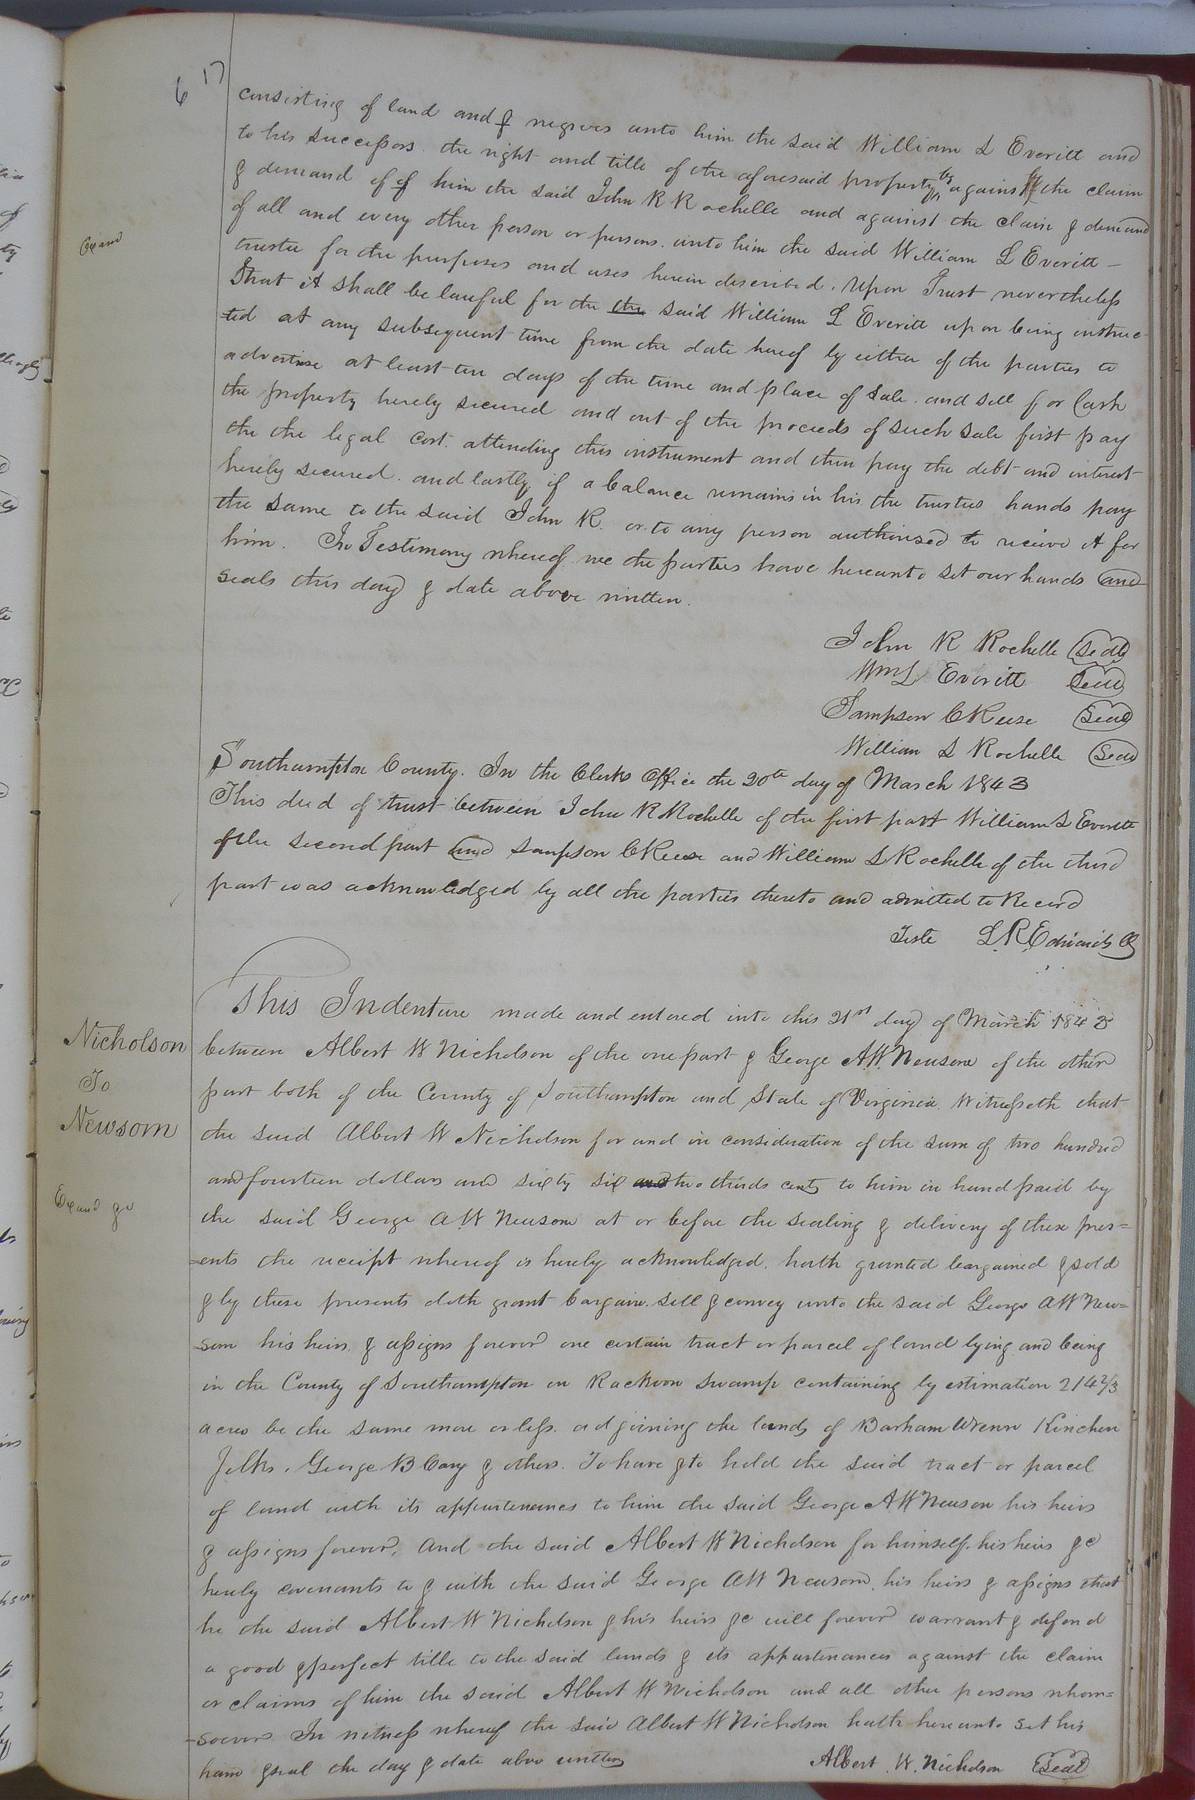 617
consisting of land and of negroes unto him the said William L Everitt and
to his successors. the right and title of the aforesaid property to against the claim
& demand of of him the said John R Rochelle and against the claim & demand
of all and every other person or persons. unto him the said William L Everitt -
trustee for the purposes and uses herein described. Upon Trust nevertheless
that it shall be lawful for the the said William L Everitt upon being instruc-
-ted at any subsequent time from the date hereof by either of the parties to
advertise at least ten days of the time and place of sale. and sell for Cash
the property hereby secured and out of the proceeds of such sale first pay
the the legal cost. attending this instrument and then pay the debt and interest
hereby secured. and lastly if a balance remains in his the trustees hands pay
the same to the said John R. or to any person authorised to receive it for
him. In Testimony whereof we the parties have hereunto set our hands and
seals this day & date above written.
John R Rochelle Seal
Wm L Everitt Seal
Sampson C Reese Seal
William L Rochelle Seal
Southampton County. In the Clerks Office the 20th day of March 1843
This deed of trust between John R Rochelle of the first part William L Everitt
of the second part and Sampson C Reese and William L Rochelle of the third
part was acknowledged by all the parties thereto and admitted to Record
Teste L. R. Edwards C
Nicholson
To
Newsom
This Indenture made and entered into this 21st day of March 1843
between Albert W Nicholson of the one part & George A.W. Newsom of the other
part both of the County of Southampton and State of Virginia Witnesseth that
the said Albert W Nicholson for and in consideration of the sum of two hundred
and fourteen dollars and sixty six and two thirds cents to him in hand paid by
the said George A.W Newsom at or before the sealing & delivery of these pres=
=ents the receipt whereof is hereby acknowledged. hath granted bargained & sold
& by these presents doth grant bargain sell & convey unto the said George A W New=
-som his heirs & assigns forever one certain tract or parcel of land lying and being
in the County of Southampton on Rackoon swamp containing by estimation 214 2/3
acres be the same more or less. adjoining the lands of Barham Wrenn Kinchen
Jelks. George B Cary & others. To have & to hold the said tract or parcel
of land with its appurtenances to him the said George A W Newsom his heirs
& assigns forever. And the said Albert W Nicholson for himself. his heirs &c
hereby covenants to & with the said George A W Newsom, his heirs & assigns that
he the said Albert W Nicholson & his heirs &c will forever warrant & defend
a good & perfect title to the said lands & its appurtenances against the claim
or claims of him the said Albert W Nicholson and all other persons whom=
-soever In witness whereof the said Albert W Nicholson hath hereunto set his
hand & seal the day & date above written
Albert. W. Nicholson Seal